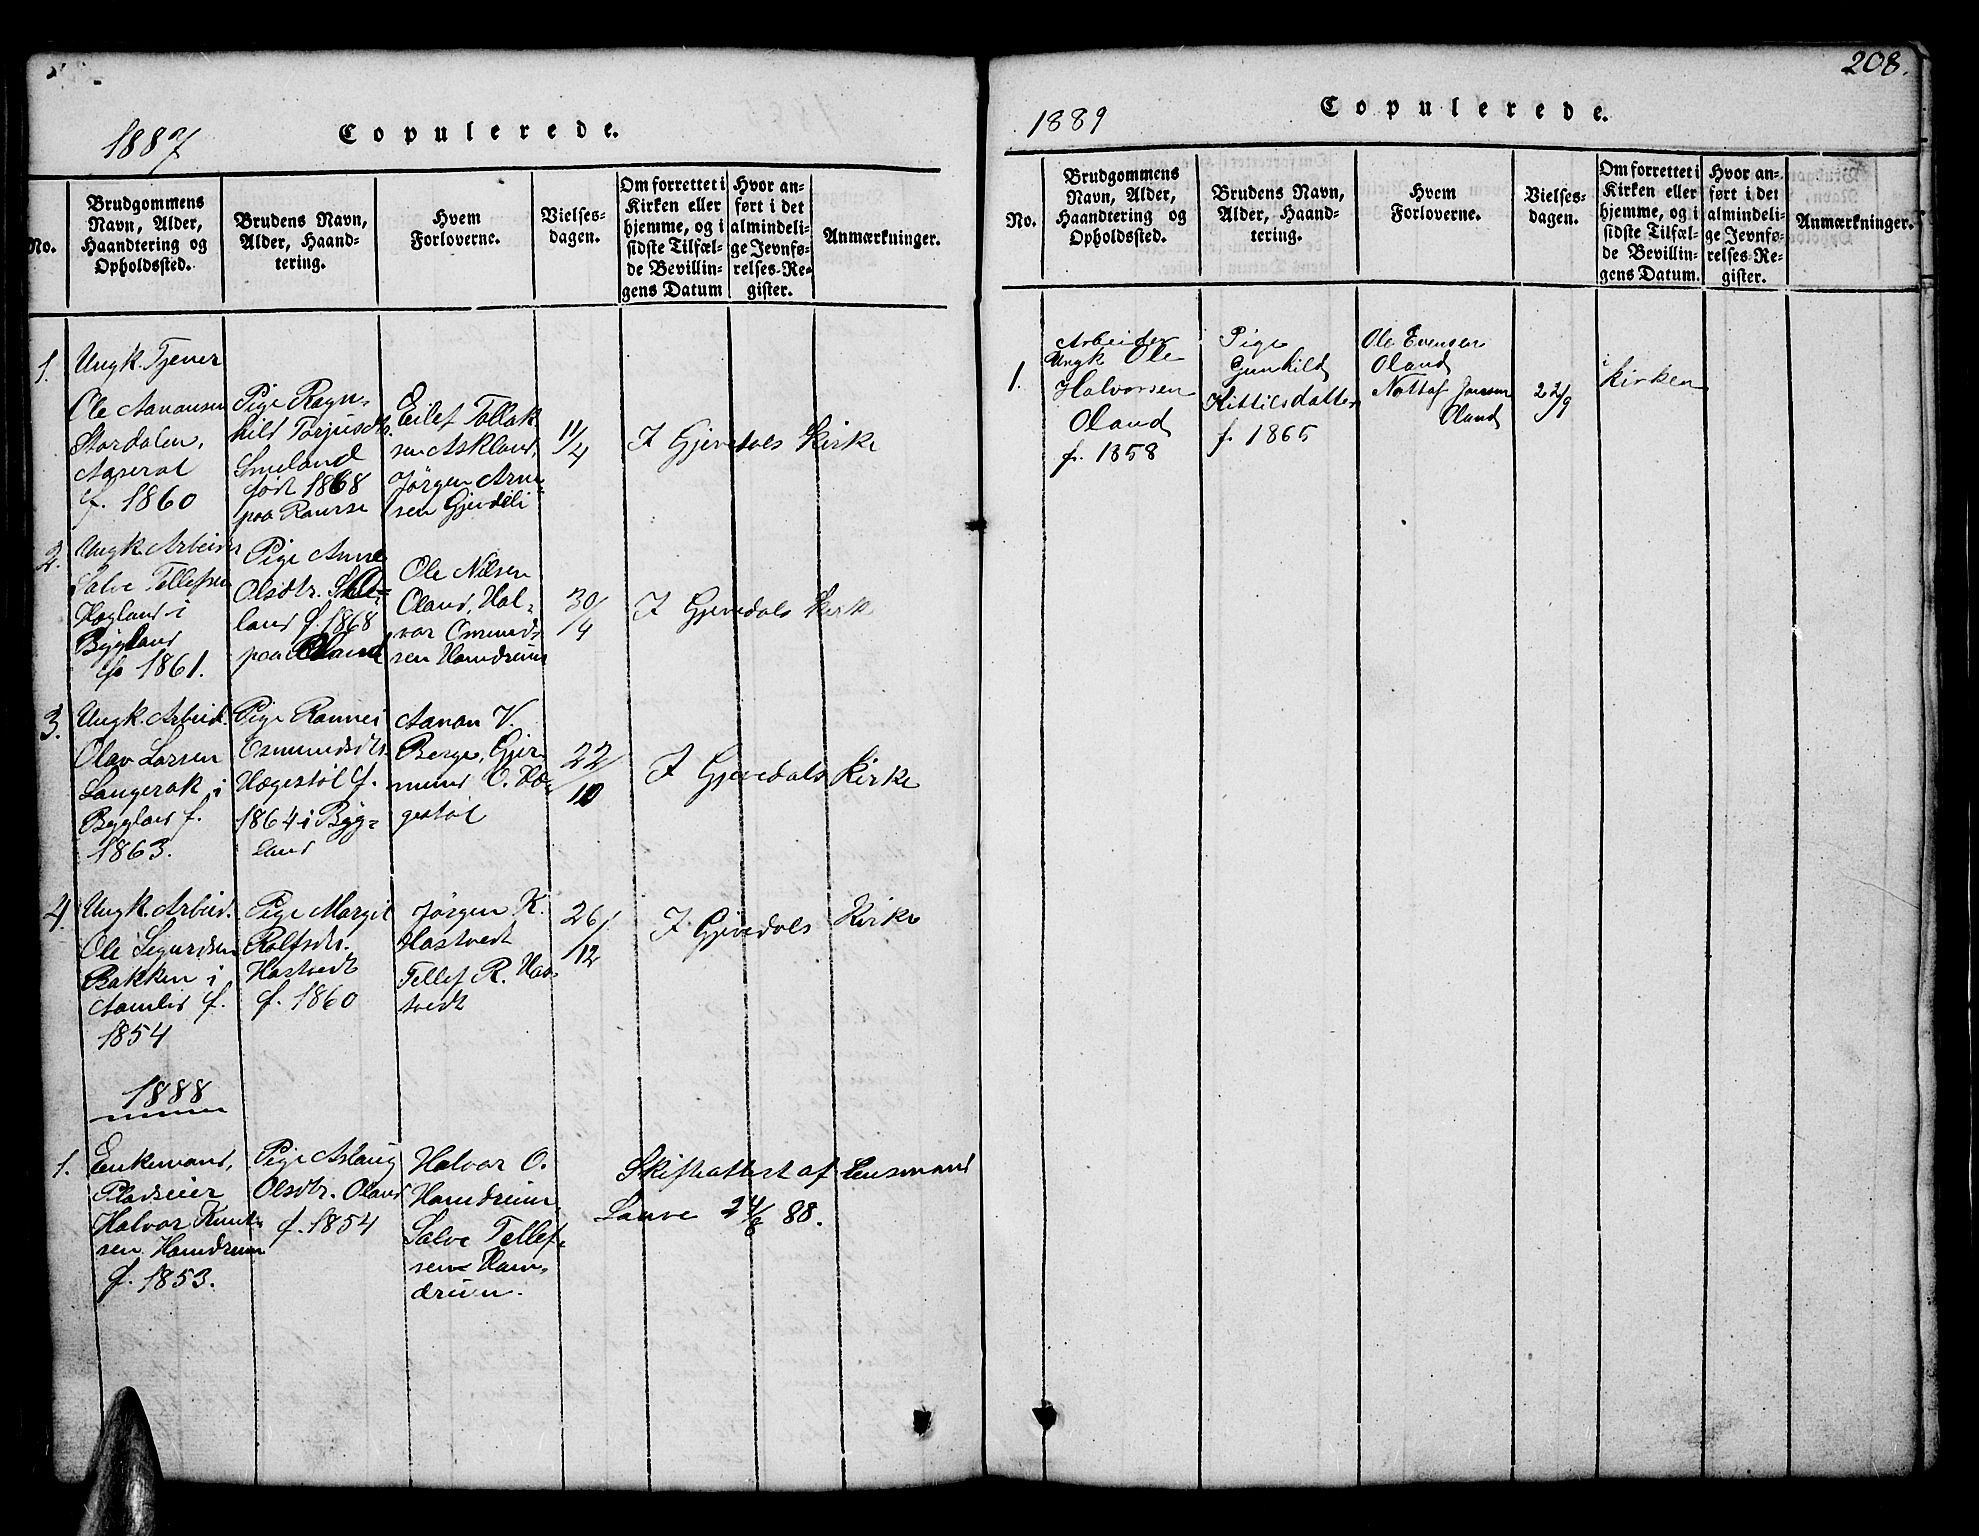 1887
Copulerede.
No.
Brudgommens
Navn, Alder,
Haandtering og
Opholdssted.
Brudens Navn,
Alder, Haand-
tering.
Hvem
Forloverne.
Vielses-
dagen.
Om forrettet i
Kirken eller
hjemme, og i
sidste Tilfæl-
de Bevillin-
gens Datum
Hvor an-
ført i det
almindeli-
ge Jevnfø-
relses-Re-
gister.
Anmærkninger.
1.
Ungk. Tjener
Ole Aanansen
Stordalen,
Aaseral
f. 1860
Pige Ragn-
hild Torjusdtr.
Smeland
født 1868
paa
Eilef Tallak-
sen Askland,
Jørgen Arne-
sen Gjevdeli
11/4
I Gjevedals Kirke
2.
Ungk. Arbeider
Salve Tellefsen
Hogland i
Bygland
f. 1861.
Pige Anne
Olsdtr.
land f. 1868
paa Oland
Ole Nilsen
Oland, Hal-
vor Osmunds-
sen Hamdrum
30/4
I Gjevedals Kirke
3.
Ungk. Arbeid.
Olav Larsen
Langerak i
Bygland f.
1863.
Pige Rannei
Osmundsdtr.
Hægestøl f.
1864 i Byg-
land
Aanon V.
Berge, Gjer-
mund O. Hæ-
gestøl
22/10
I Gjevedals Kirke
4.
Ungk. Arbeid.
Ole Sigurdsen
Bakken i
Aamlid f.
1854
Pige Margit
Rolfsdtr.
Hastvedt
f. 1860
Jørgen K.
Hastvedt
Tellef R. Has-
tvedt
26/12
I Gjevedals Kirke
1888
1.
Enkemand,
Pladseier
Halvor Knut-
sen Hamdrum
f. 1853.
Pige Aslaug
Olsdtr. Oland
f. 1854
Halvor O.
Hamdrum
Salve Tellef-
sen Ham-
drum.
Skifteattest af Lensmand
Lauve 24/8 88.
208.
1889
Copulerede.
No.
Brudgommens
Navn, Alder,
Haandtering og
Opholdssted.
Brudens Navn,
Alder, Haand-
tering.
Hvem
Forloverne.
Vielses-
dagen.
Om forrettet i
Kirken eller
hjemme, og i
sidste Tilfæl-
de Bevillin-
gens Datum.
Hvor an-
ført i det
almindeli-
ge Jevnfø-
relses-Re-
gister.
Anmærkninger.
1.
Arbeider
Ungk. Ole
Halvorsen
Oland
f. 1858
Pige
Gunhild
Kittilsdatter
f. 1865
Ole Evensen
Oland
Nottaf Jensen
Oland
22/9
i
kirken